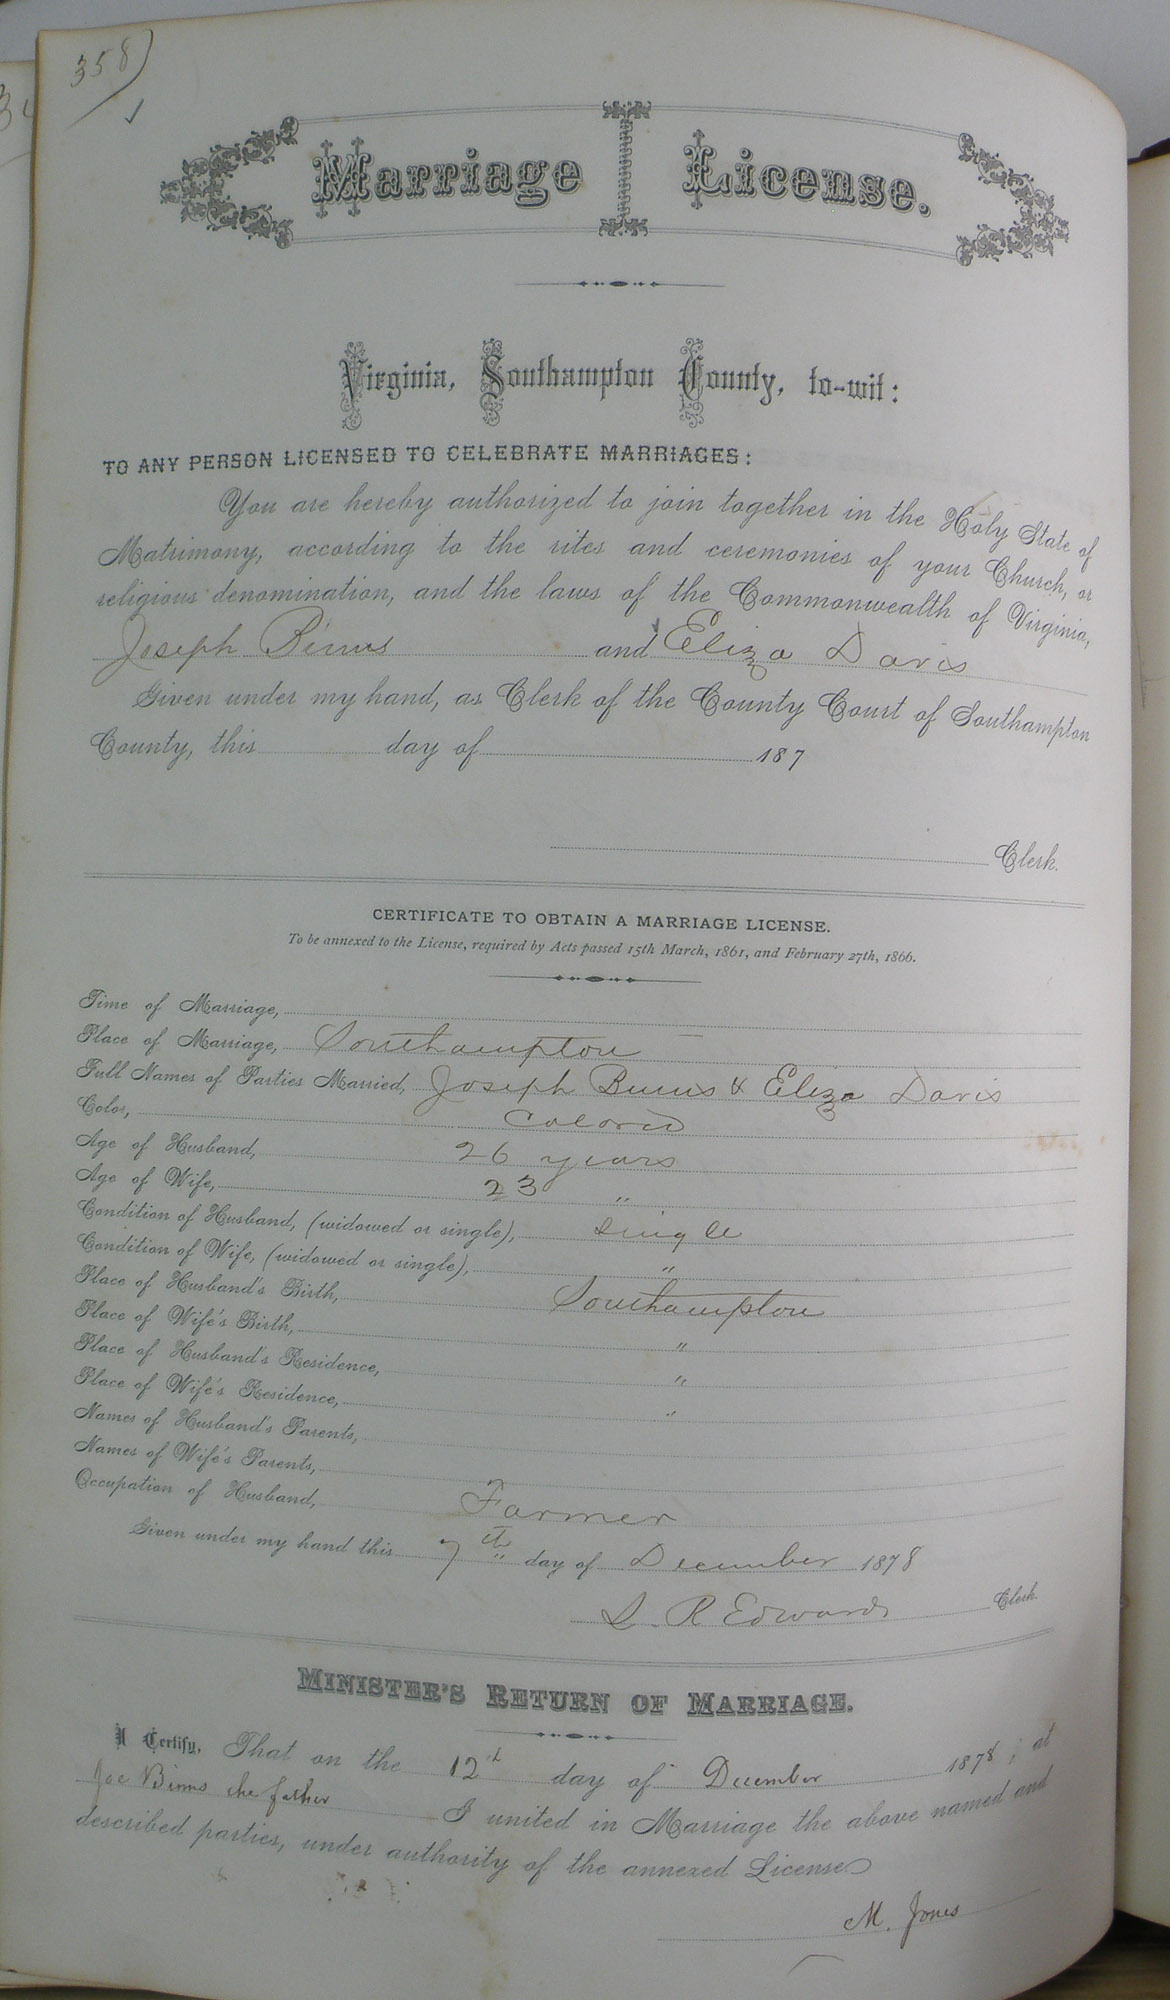 358)
Marriage License.
Virginia, Southampton County, to-wit:
TO ANY PERSON LICENSED TO CELEBRATE MARRIAGES:
You are hereby authorized to join together in the Holy State of
Matrimony, according to the rites and ceremonies of your Church, or
religious denomination, and the laws of the Commonwealth of Virginia,
Joseph Binns and Eliza Davis
Given under my hand, as Clerk of the County Court of Southampton
County, this day of 187
Clerk.
CERTIFICATE TO OBTAIN A MARRIAGE LICENSE.
To be annexed to the License, required by Acts passed 15th March, 1861, and February 27th, 1866.
Time of Marriage,
Place of Marriage, Southampton
Full Names of Parties Married, Joseph Binns & Eliza Davis
Color, Colored
Age of Husband, 26 years
Age of Wife, 23 "
Condition of Husband, (widowed or single), single
Condition of Wife, (widowed or single), "
Place of Husband's Birth, Southampton
Place of Wife's Birth, "
Place of Husband's Residence, "
Place of Wife's Residence, "
Names of Husband's Parents,
Names of Wife's Parents,
Occupation of Husband, Farmer
Given under my hand this 7th day of December 1878
L. R. Edwards Clerk.
MINISTER'S RETURN OF MARRIAGE.
I Certify, That on the 12th day of December 1878; at
Joe Binns the father I united in Marriage the above named and
described parties, under authority of the annexed License
M. Jones